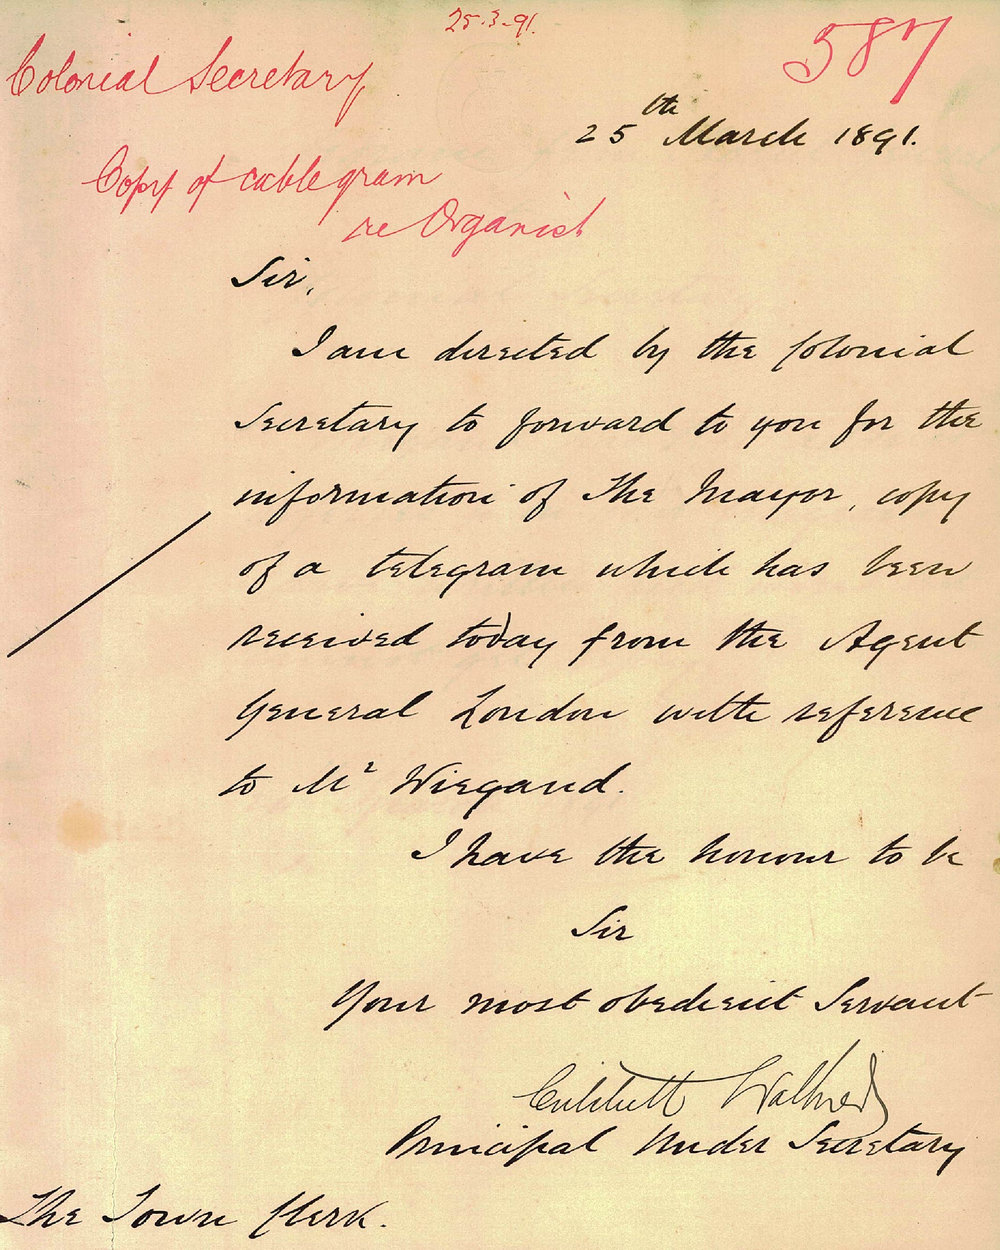 25.3.91.
587
Colonial Secretary
25th March 1891.
Copy of cablegram
re Organist
Sir,
I am directed by the Colonial
Secretary to forward to you for the
information of the Mayor, copy
of a telegram which has been
received today from the Agent
General London with reference
to Mr Wiegand.
I have the honour to be
Sir
Your most obedient Servant
Critchett Walker
Principal Under Secretary
The Town Clerk.